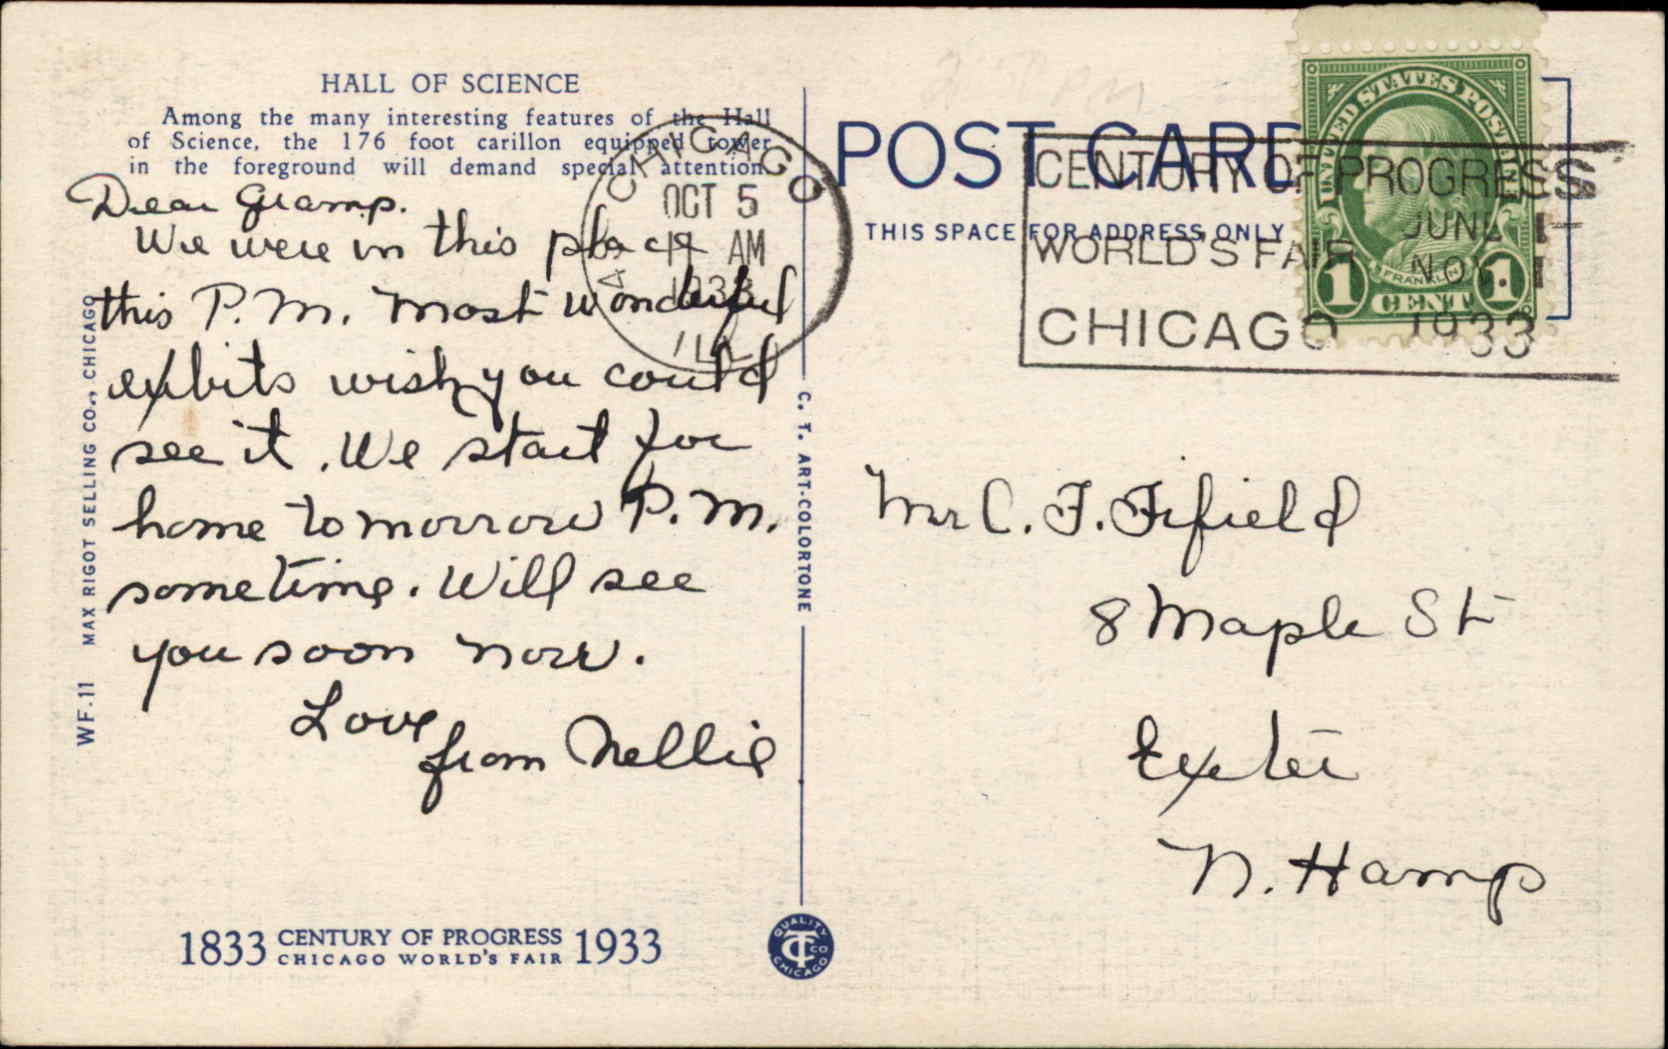 HALL OF SCIENCE
Among the many interesting features of the Hall
of Science, the 176 foot carillon equipped tower
in the foreground will demand special attention.
Dear Gramp.
We were in this place
this P.M. Most wonderful
exbits wish you could
see it. We start for
home tomorrow P.M.
sometime. Will see
you soon now.
Love
from Nellie
WF.11 MAX RIGOT SELLING CO., CHICAGO
1833 CENTURY OF PROGRESS 1933
CHICAGO WORLD'S FAIR
C. T. ART-COLORTONE
QUALITY
CT CO
CHICAGO
CHICAGO
OCT 5
11 AM
1933
ILL
POST CARD
THIS SPACE FOR ADDRESS ONLY
CENTURY OF PROGRESS
JUNE 1
WORLD'S FAIR
NOV. 1
CHICAGO 1933
UNITED STATES POSTAGE
FRANKLIN
1 CENT 1
Mr C. F. Fifield
8 Maple St
Exeter
N. Hamp